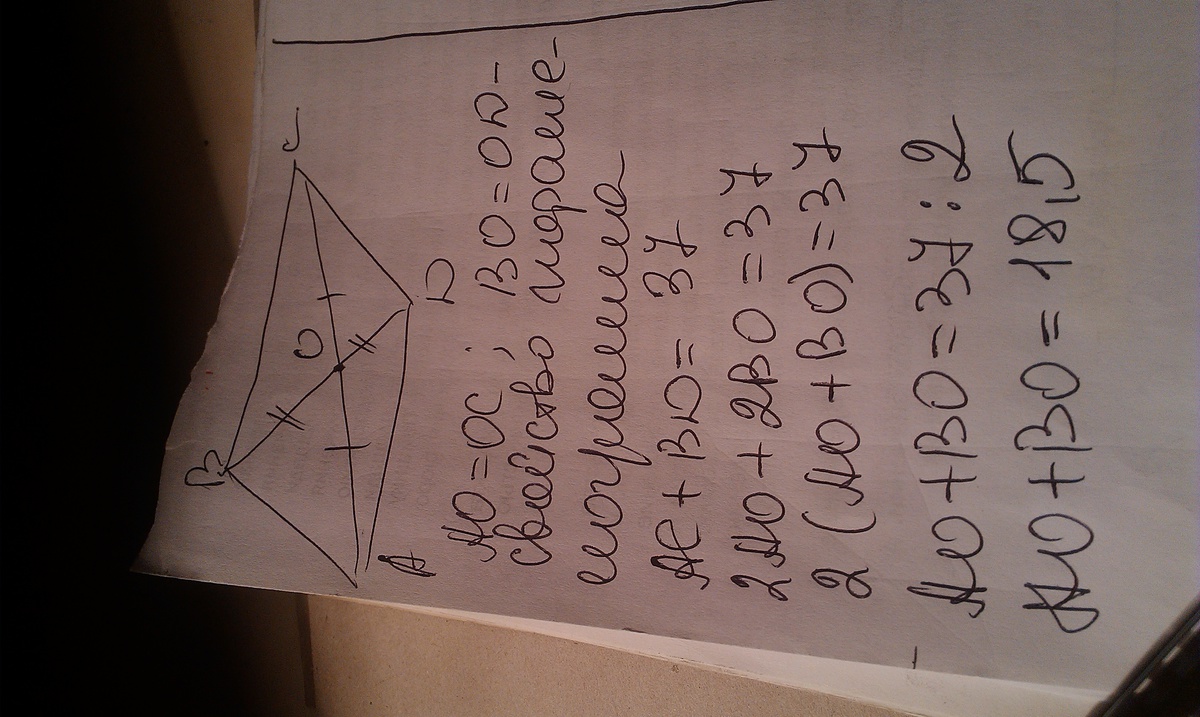 B
C
O
A
D
AO = OC ; BO = OD -
свойство параллe-
лограмма
AC + BD = 37
2AO + 2BO = 37
2 (AO + BO) = 37
AO + BO = 37 : 2
AO + BO = 18,5